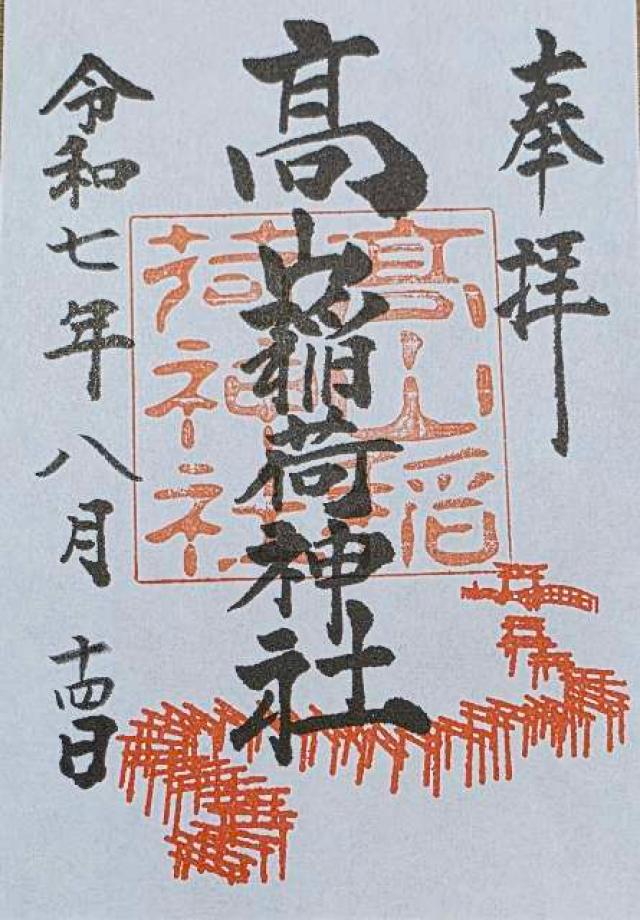 奉拝
高山稲荷神社
令和七年八月十四日
高山稲
荷神社